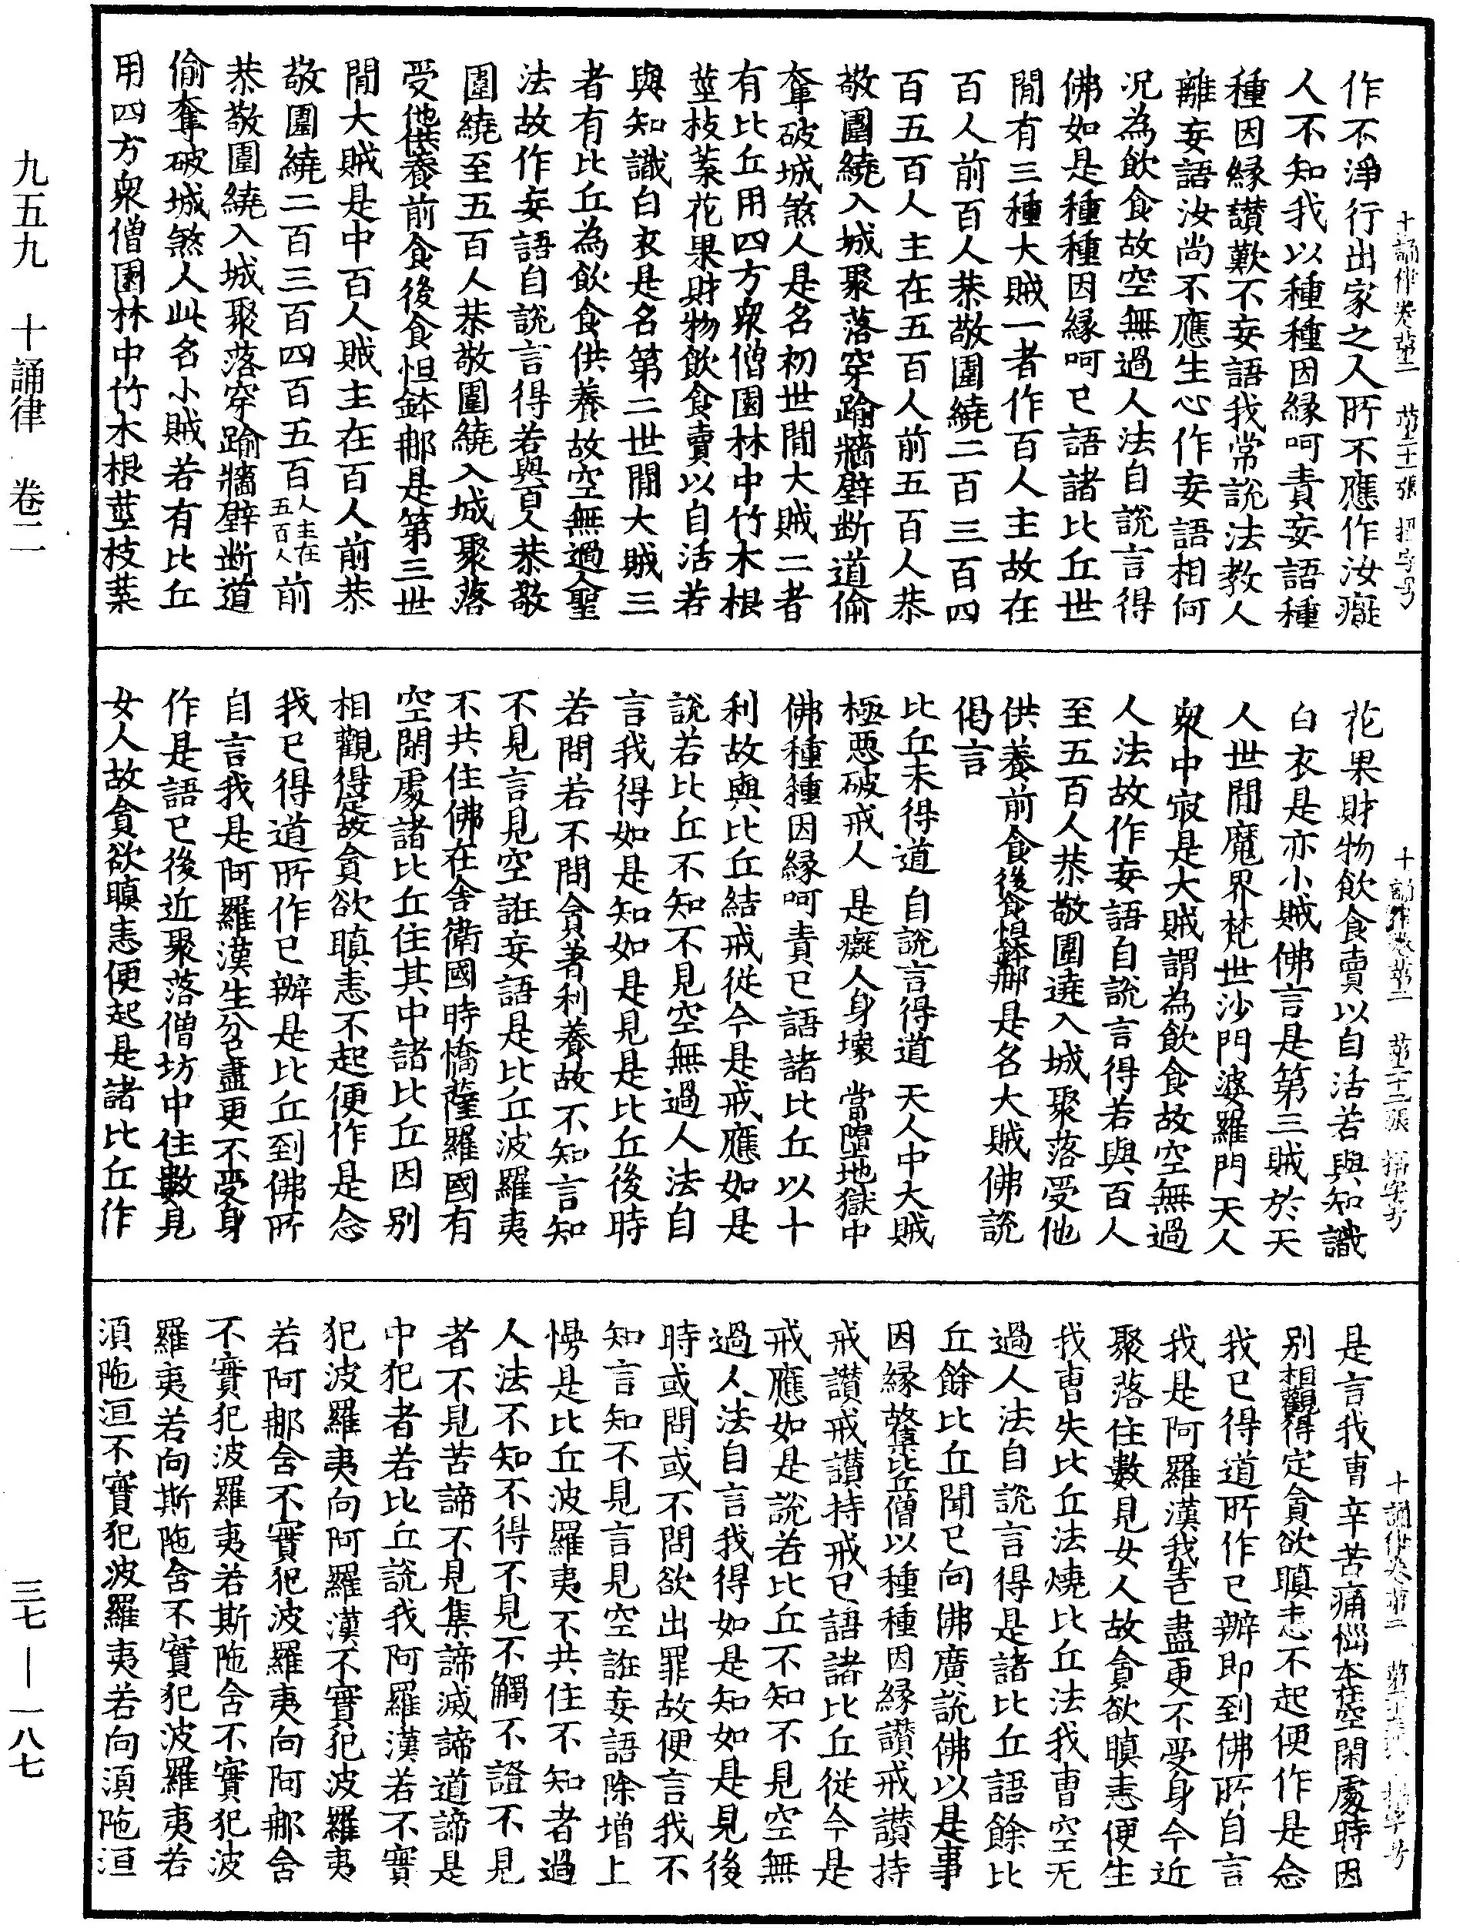 十誦律卷第二 第二十一張 招字号
作不淨行出家之人所不應作汝癡
人不知我以種種因緣呵責妄語種
種因緣讃歎不妄語我常說法教人
離妄語汝尚不應生心作妄語相何
况為飲食故空無過人法自說言得
佛如是種種因緣呵已語諸比丘世
閒有三種大賊一者作百人主故在
百人前百人恭敬圍繞二百三百四
百五百人主在五百人前五百人恭
敬圍繞入城聚落穿踰牆壁斷道偷
奪破城煞人是名初世閒大賊二者
有比丘用四方衆僧園林中竹木根
莖枝葉花果財物飲食賣以自活若
與知識白衣是名第二世閒大賊三
者有比丘為飲食供養故空無過人聖
法故作妄語自說言得若與百人恭敬
圍繞至五百人恭敬圍繞入城聚落
受他供養前食後食怛鉢那是第三世
閒大賊是中百人賊主在百人前恭
敬圍繞二百三百四百五百人主在五百人前
恭敬圍繞入城聚落穿踰牆壁斷道
偷奪破城煞人此名小賊若有比丘
用四方衆僧園林中竹木根莖枝葉
十誦律卷第二 第二十二張 招字号
花果財物飲食賣以自活若與知識
白衣是亦小賊佛言是第三賊於天
人世閒魔界梵世沙門婆羅門天人
衆中㝡是大賊謂為飲食故空無過
人法故作妄語自說言得若與百人
至五百人恭敬圍遶入城聚落受他
供養前食後食怛鉢那是名大賊佛說
偈言
比丘未得道 自說言得道 天人中大賊
極惡破戒人 是癡人身壞 當墮地獄中
佛種種因緣呵責已語諸比丘以十
利故與比丘結戒從今是戒應如是
說若比丘不知不見空無過人法自
言我得如是知如是見是比丘後時
若問若不問貪著利養故不知言知
不見言見空誑妄語是比丘波羅夷
不共住佛在舍衛國時憍薩羅國有
空閑處諸比丘住其中諸比丘因別
相觀得定故貪欲瞋恚不起便作是念
我已得道所作已辦是比丘到佛所
自言我是阿羅漢生分已盡更不受身
作是語已後近聚落僧坊中住數見
女人故貪欲瞋恚便起是諸比丘作
十誦律卷第二 第二十三張 招字号
是言我曹辛苦痛惱本在空閑處時因
別相觀得定貪欲瞋恚不起便作是念
我已得道所作已辦即到佛所自言
我是阿羅漢我生已盡更不受身今近
聚落住數見女人故貪欲瞋恚便生
我曹失比丘法燒比丘法我曹空无
過人法自說言得是諸比丘語餘比
丘餘比丘聞已向佛廣說佛以是事
因緣故集比丘僧以種種因緣讃戒讃持
戒讃戒讃持戒已語諸比丘從今是
戒應如是說若比丘不知不見空無
過人法自言我得如是知如是見後
時或問或不問欲出罪故便言我不
知言知不見言見空誑妄語除增上
慢是比丘波羅夷不共住不知者過
人法不知不得不見不觸不證不見
者不見苦諦不見集諦滅諦道諦是
中犯者若比丘說我阿羅漢若不實
犯波羅夷向阿羅漢不實犯波羅夷
若阿那含不實犯波羅夷向阿那含
不實犯波羅夷若斯陁含不實犯波
羅夷若向斯陁含不實犯波羅夷若
須陁洹不實犯波羅夷若向須陁洹
九五九 十誦律 卷二
三七—一八七